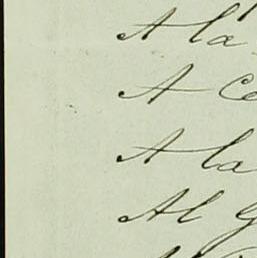 A la
A Ce
A la
Al G